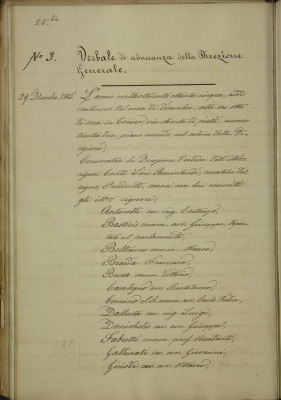 25. bis
No 3. Verbale di adunanza della Direzione
Generale.
29 Dicembre 1885. L'anno milleottocento ottanta cinque, addì
ventinove del mese di dicembre, alle ore otto
di sera in Torino, via Monte di pietà, numero
trenta due, piano secondo, nel salone della Di
rezione;
Convocatasi la Direzione d'ordine dell'illmo
signor Conte Luigi senatore del
regno, Presidente, sonosi con lui
gli illmi signori:
Antonelli cav. ing. Costanzo,
comm. avv. Giuseppe, depu
tato al parlamento,
comm. Marco
Braida Francesco,
Bussa comm. Vittorio,
cav. Bartolomeo,
comm. avv. Carlo Felice,
Dallosta cav. ing. Luigi,
Demichelis cav. avv. Giuseppe,
Fabretti comm. prof. Ariodante,
Gallinati cav. avv. Giovanni,
cav. avv. Ottavio,